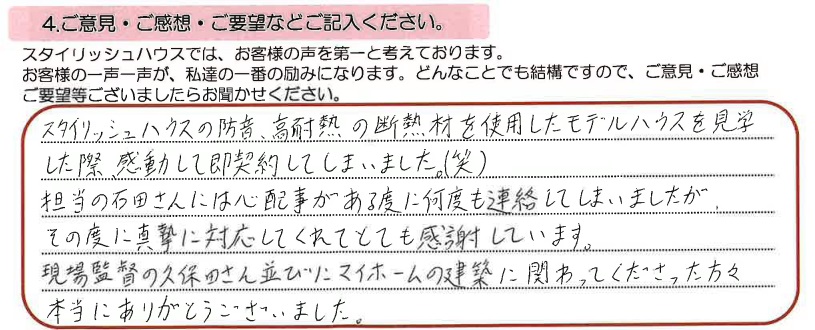 4.ご意見・ご感想・ご要望などご記入ください。
スタイリッシュハウスでは、お客様の声を第一と考えております。
お客様の一声一声が、私達の一番の励みになります。どんなことでも結構ですので、ご意見・ご感想
ご要望等ございましたらお聞かせください。
スタイリッシュハウスの防音、高耐熱の断熱材を使用したモデルハウスを見学
した際、感動して即契約してしまいました。(笑)
担当の石田さんには心配事がある度に何度も連絡してしまいましたが、
その度に真摯に対応してくれてとても感謝しています。
現場監督の久保田さん並びにマイホームの建築に関わってくださった方々
本当にありがとうございました。